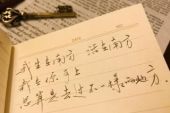 DATE
我生在南方 活在南方
我在你手上
总算是去过不一样的地方.